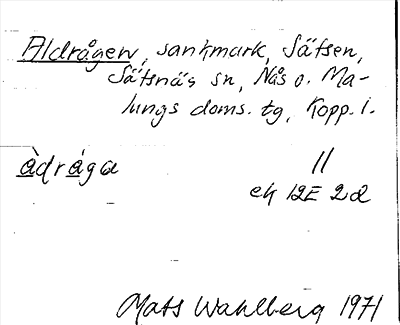 Aldrågen, sankmark, Sätsen,
Sätsnäs sn, Nås o. Ma-
lungs doms. tg, Kopp. l.
àdrága //
ek 12E 2d
Mats Wahlberg 1971